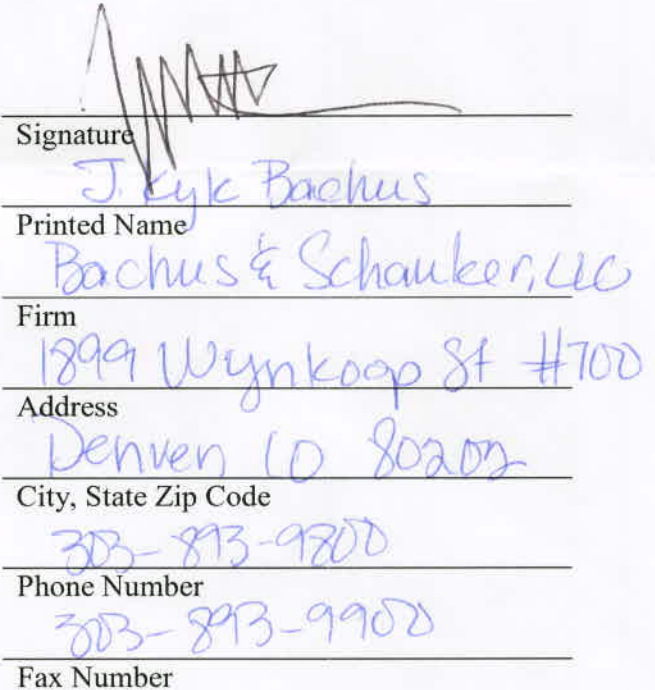 Signature
J. Kyle Bachus
Printed Name
Bachus & Schanker, LLC
Firm
1899 Wynkoop St #700
Address
Denver CO 80202
City, State Zip Code
303-893-9800
Phone Number
303-893-9900
Fax Number